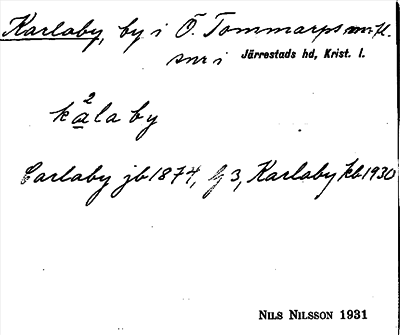 Karlaby, by i Ö. Tommarps
snr i Järrestads hd, Krist. l.
kàlaby
Carlaby jb 1874, G 3, Karlaby kb 1930
NILS NILSSON 1931